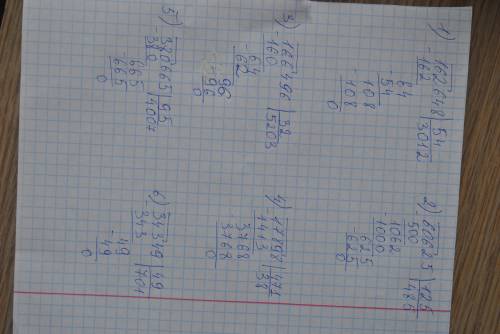 1) 162648 | 54
-162 | 3012
64
54
-108
108
0
2) 60625 | 125
500 | 485
-1062
1000
-625
625
0
3) 166496 | 32
-160 | 5203
-64
62
-96
96
0
4) 17898 | 471
-1413 | 38
3768
3768
0
5) 380665 | 95
-380 | 4007
-665
665
0
6) 34349 | 49
343 | 701
-49
49
0